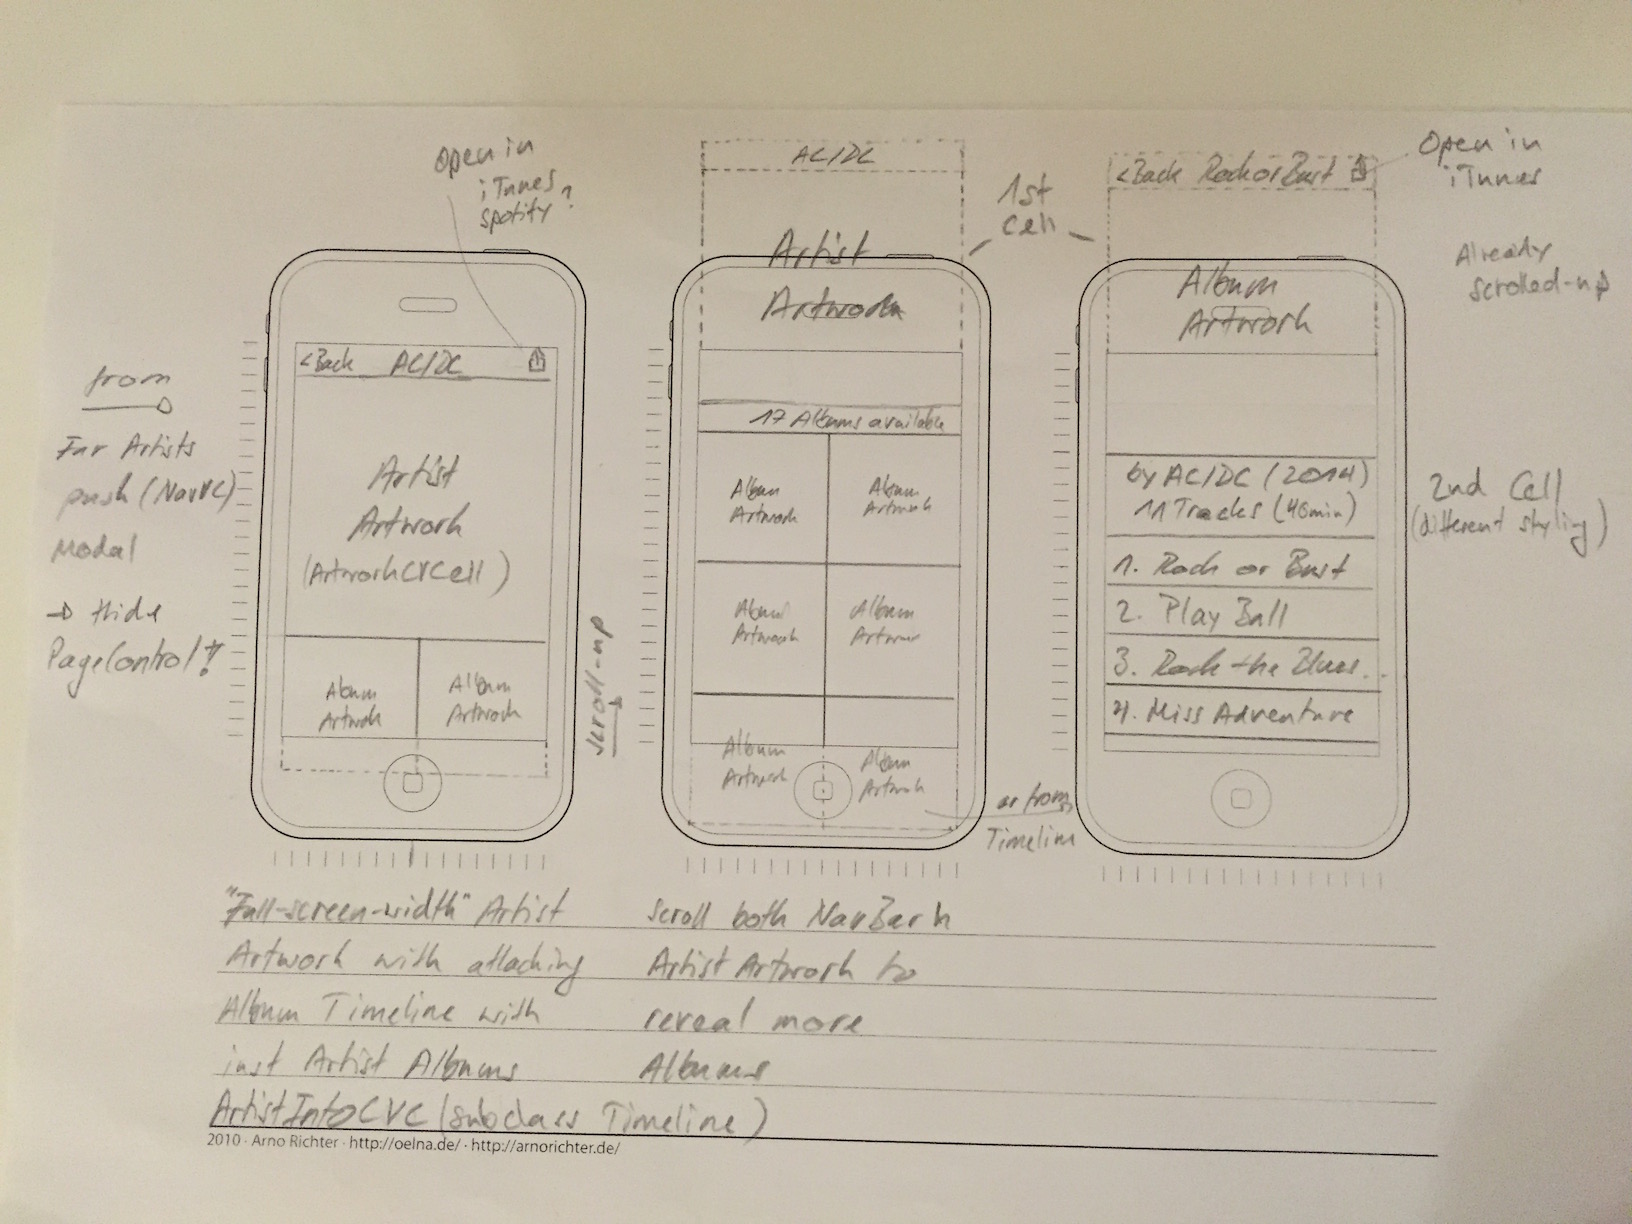 Open in
iTunes
spotify?
from
Fur Artists
push (NavVC)
Modal
→ Hide
PageControl!
<Back AC/DC
Artist
Artwork
(ArtworkCVCell)
Album
Artwork
Album
Artwork
scroll-up
AC/DC
Artist
Artwork
17 Albums available
Album
Artwork
Album
Artwork
Album
Artwork
Album
Artwork
Album
Artwork
Album
Artwork
1st
Cell
or from
Timeline
<Back Rock or Bust
Open in
iTunes
Already
scrolled-up
Album
Artwork
by AC/DC (2014)
11 Tracks (40min)
2nd Cell
(different styling)
1. Rock or Bust
2. Play Ball
3. Rock the Blues..
4. Miss Adventure
"Full-screen-width" Artist
Artwork with attaching
Album Timeline with
just Artist Albums
ArtistInfoCVC (subclass Timeline)
scroll both NavBar &
Artist Artwork to
reveal more
Albums
2010 · Arno Richter · http://oelna.de/ · http://arnorichter.de/